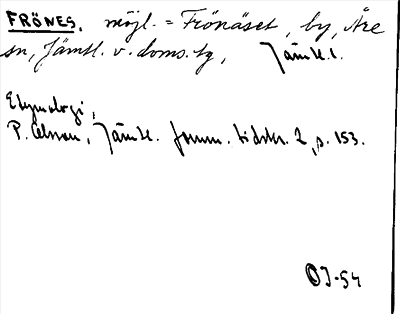 FRÖNES, möjl. = Frönäset, by, Åre
sn, Jämtl. v. doms. tg, Jämtl. l.
Etymologi,
P. Olsson, Jämtl. fornm. tidskr. 2, s. 153.
OJ-54